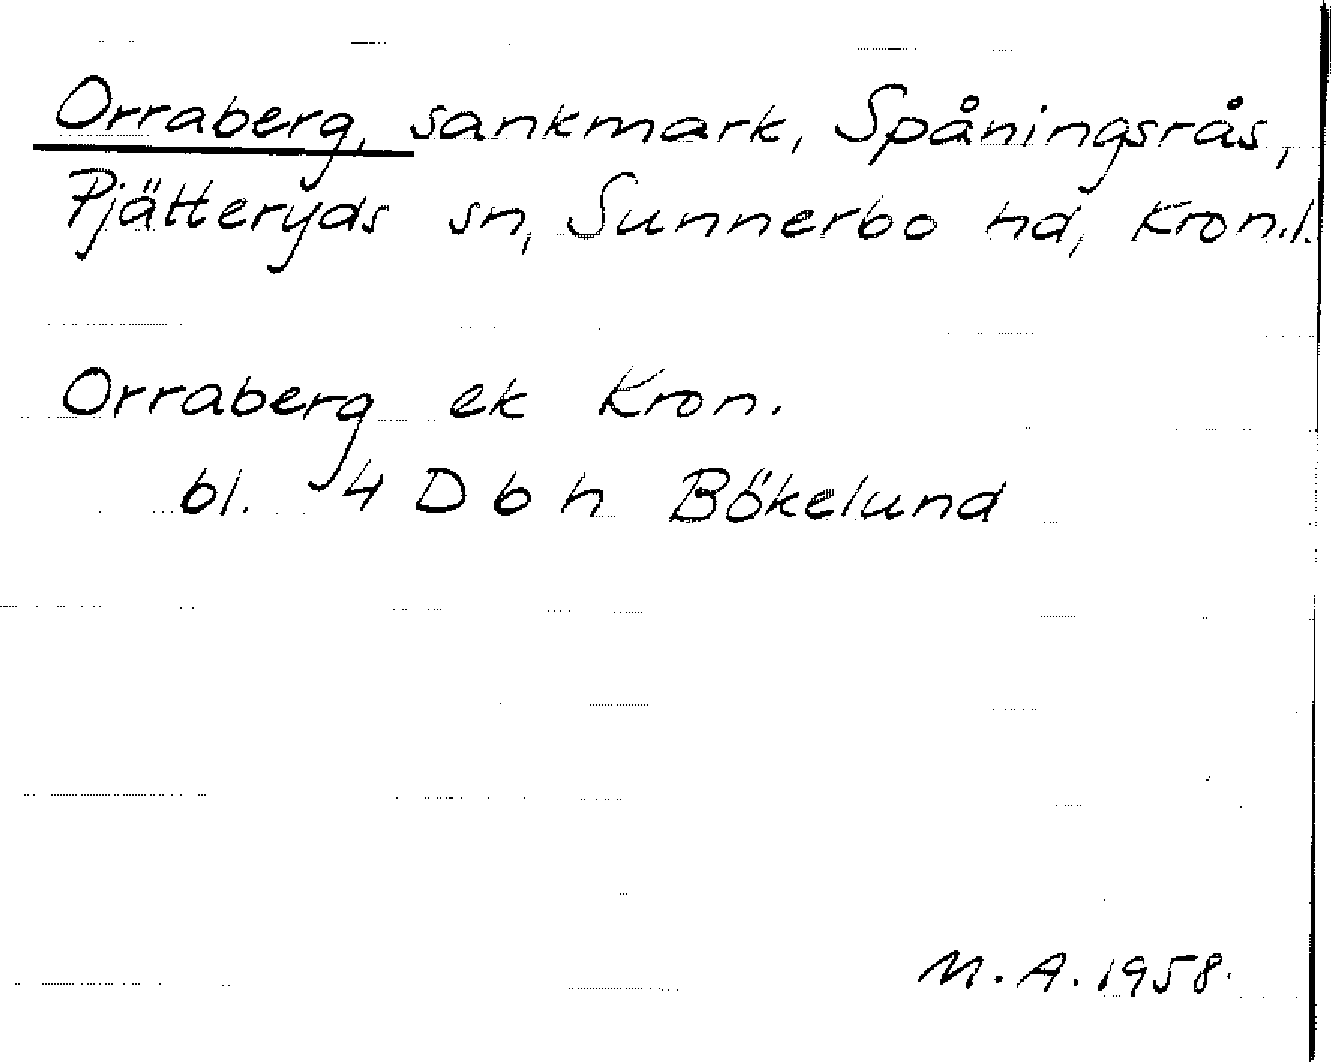 Orraberg, sankmark, Spåningsrås,
Pjätteryds sn, Sunnerbo hd, Kron.l.
Orraberg ek Kron.
bl. 4 D b h Bökelund
M.A. 1958.